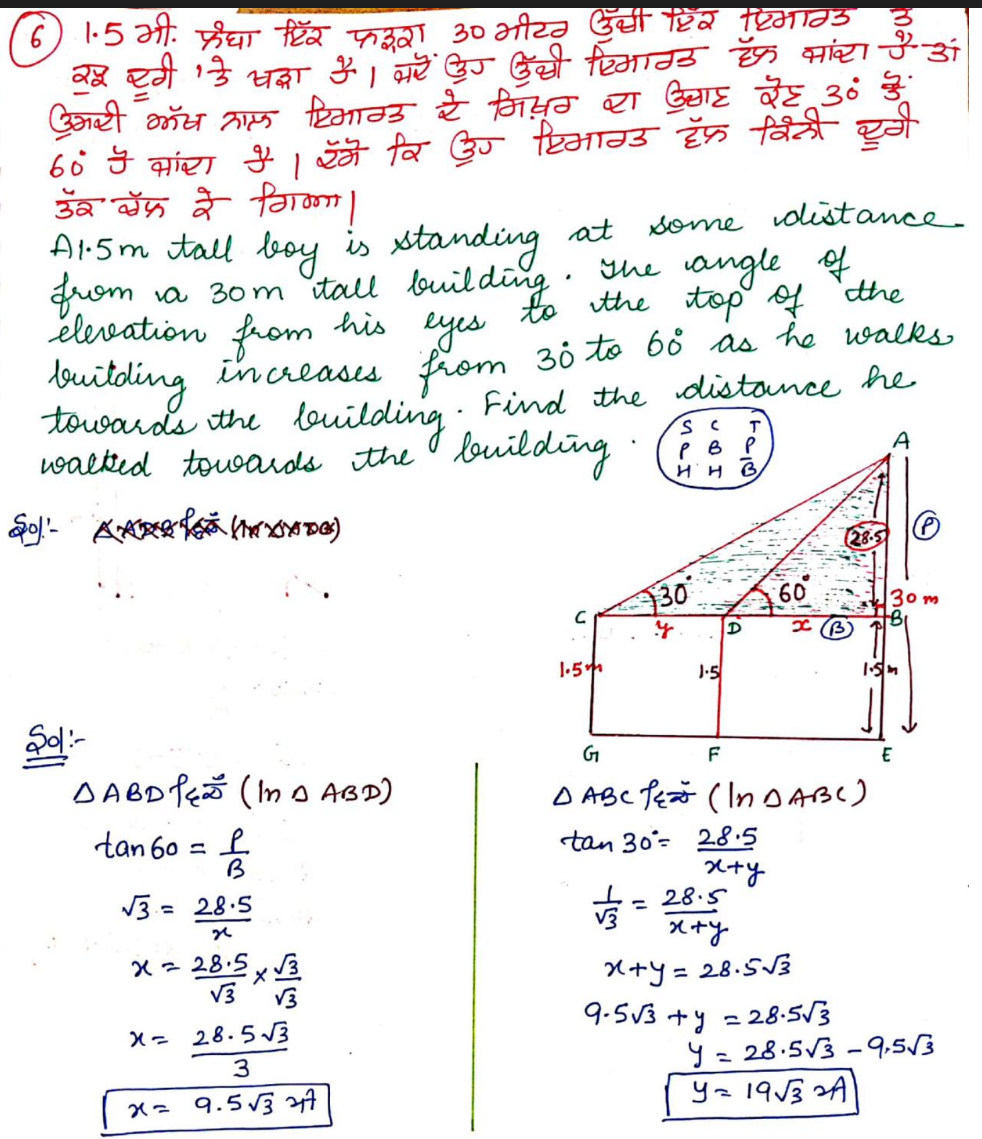 6 1.5 ਮੀ. ਲੰਬਾ ਇੱਕ ਲੜਕਾ 30 ਮੀਟਰ ਉੱਚੀ ਇੱਕ ਇਮਾਰਤ ਤੋਂ
ਕੁਝ ਦੂਰੀ 'ਤੇ ਖੜਾ ਹੈ। ਜਦੋਂ ਉਹ ਉੱਚੀ ਇਮਾਰਤ ਵੱਲ ਜਾਂਦਾ ਹੈ ਤਾਂ
ਉਸਦੀ ਅੱਖ ਨਾਲ ਇਮਾਰਤ ਦੇ ਸਿਖ਼ਰ ਦਾ ਉਚਾਣ ਕੋਣ 30° ਤੋਂ
60° ਹੋ ਜਾਂਦਾ ਹੈ। ਦੱਸੋ ਕਿ ਉਹ ਇਮਾਰਤ ਵੱਲ ਕਿੰਨੀ ਦੂਰੀ
ਤੱਕ ਚੱਲ ਕੇ ਗਿਆ।
A 1.5m tall boy is standing at some distance
from a 30m tall building. The angle of
elevation from his eyes to the top of the
building increases from 30° to 60° as he walks
towards the building. Find the distance he
walked towards the building.
S C T
P B P
H H B
A
28.5
P
30°
60°
30m
C
y
D
x
B
B
1.5m
1.5
1.5m
G
F
E
Sol:-
Sol:-
△ABD ਵਿੱਚੋਂ (In △ ABD)
tan 60 = P/B
√3 = 28.5/x
x = 28.5/√3 × √3/√3
x = 28.5√3/3
x = 9.5√3 ਮੀ
△ABC ਵਿੱਚੋਂ (In △ABC)
tan 30° = 28.5/x+y
1/√3 = 28.5/x+y
x+y = 28.5√3
9.5√3 + y = 28.5√3
y = 28.5√3 - 9.5√3
y = 19√3 ਮੀ